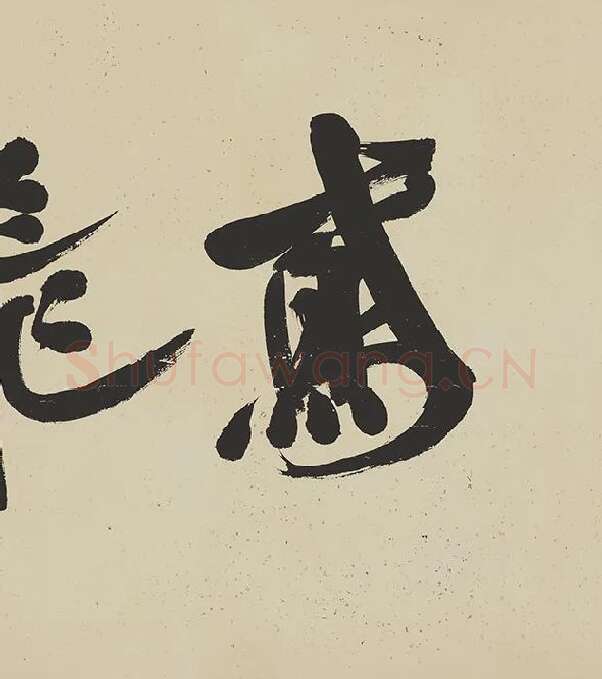 鳶飛
Shufawang.CN